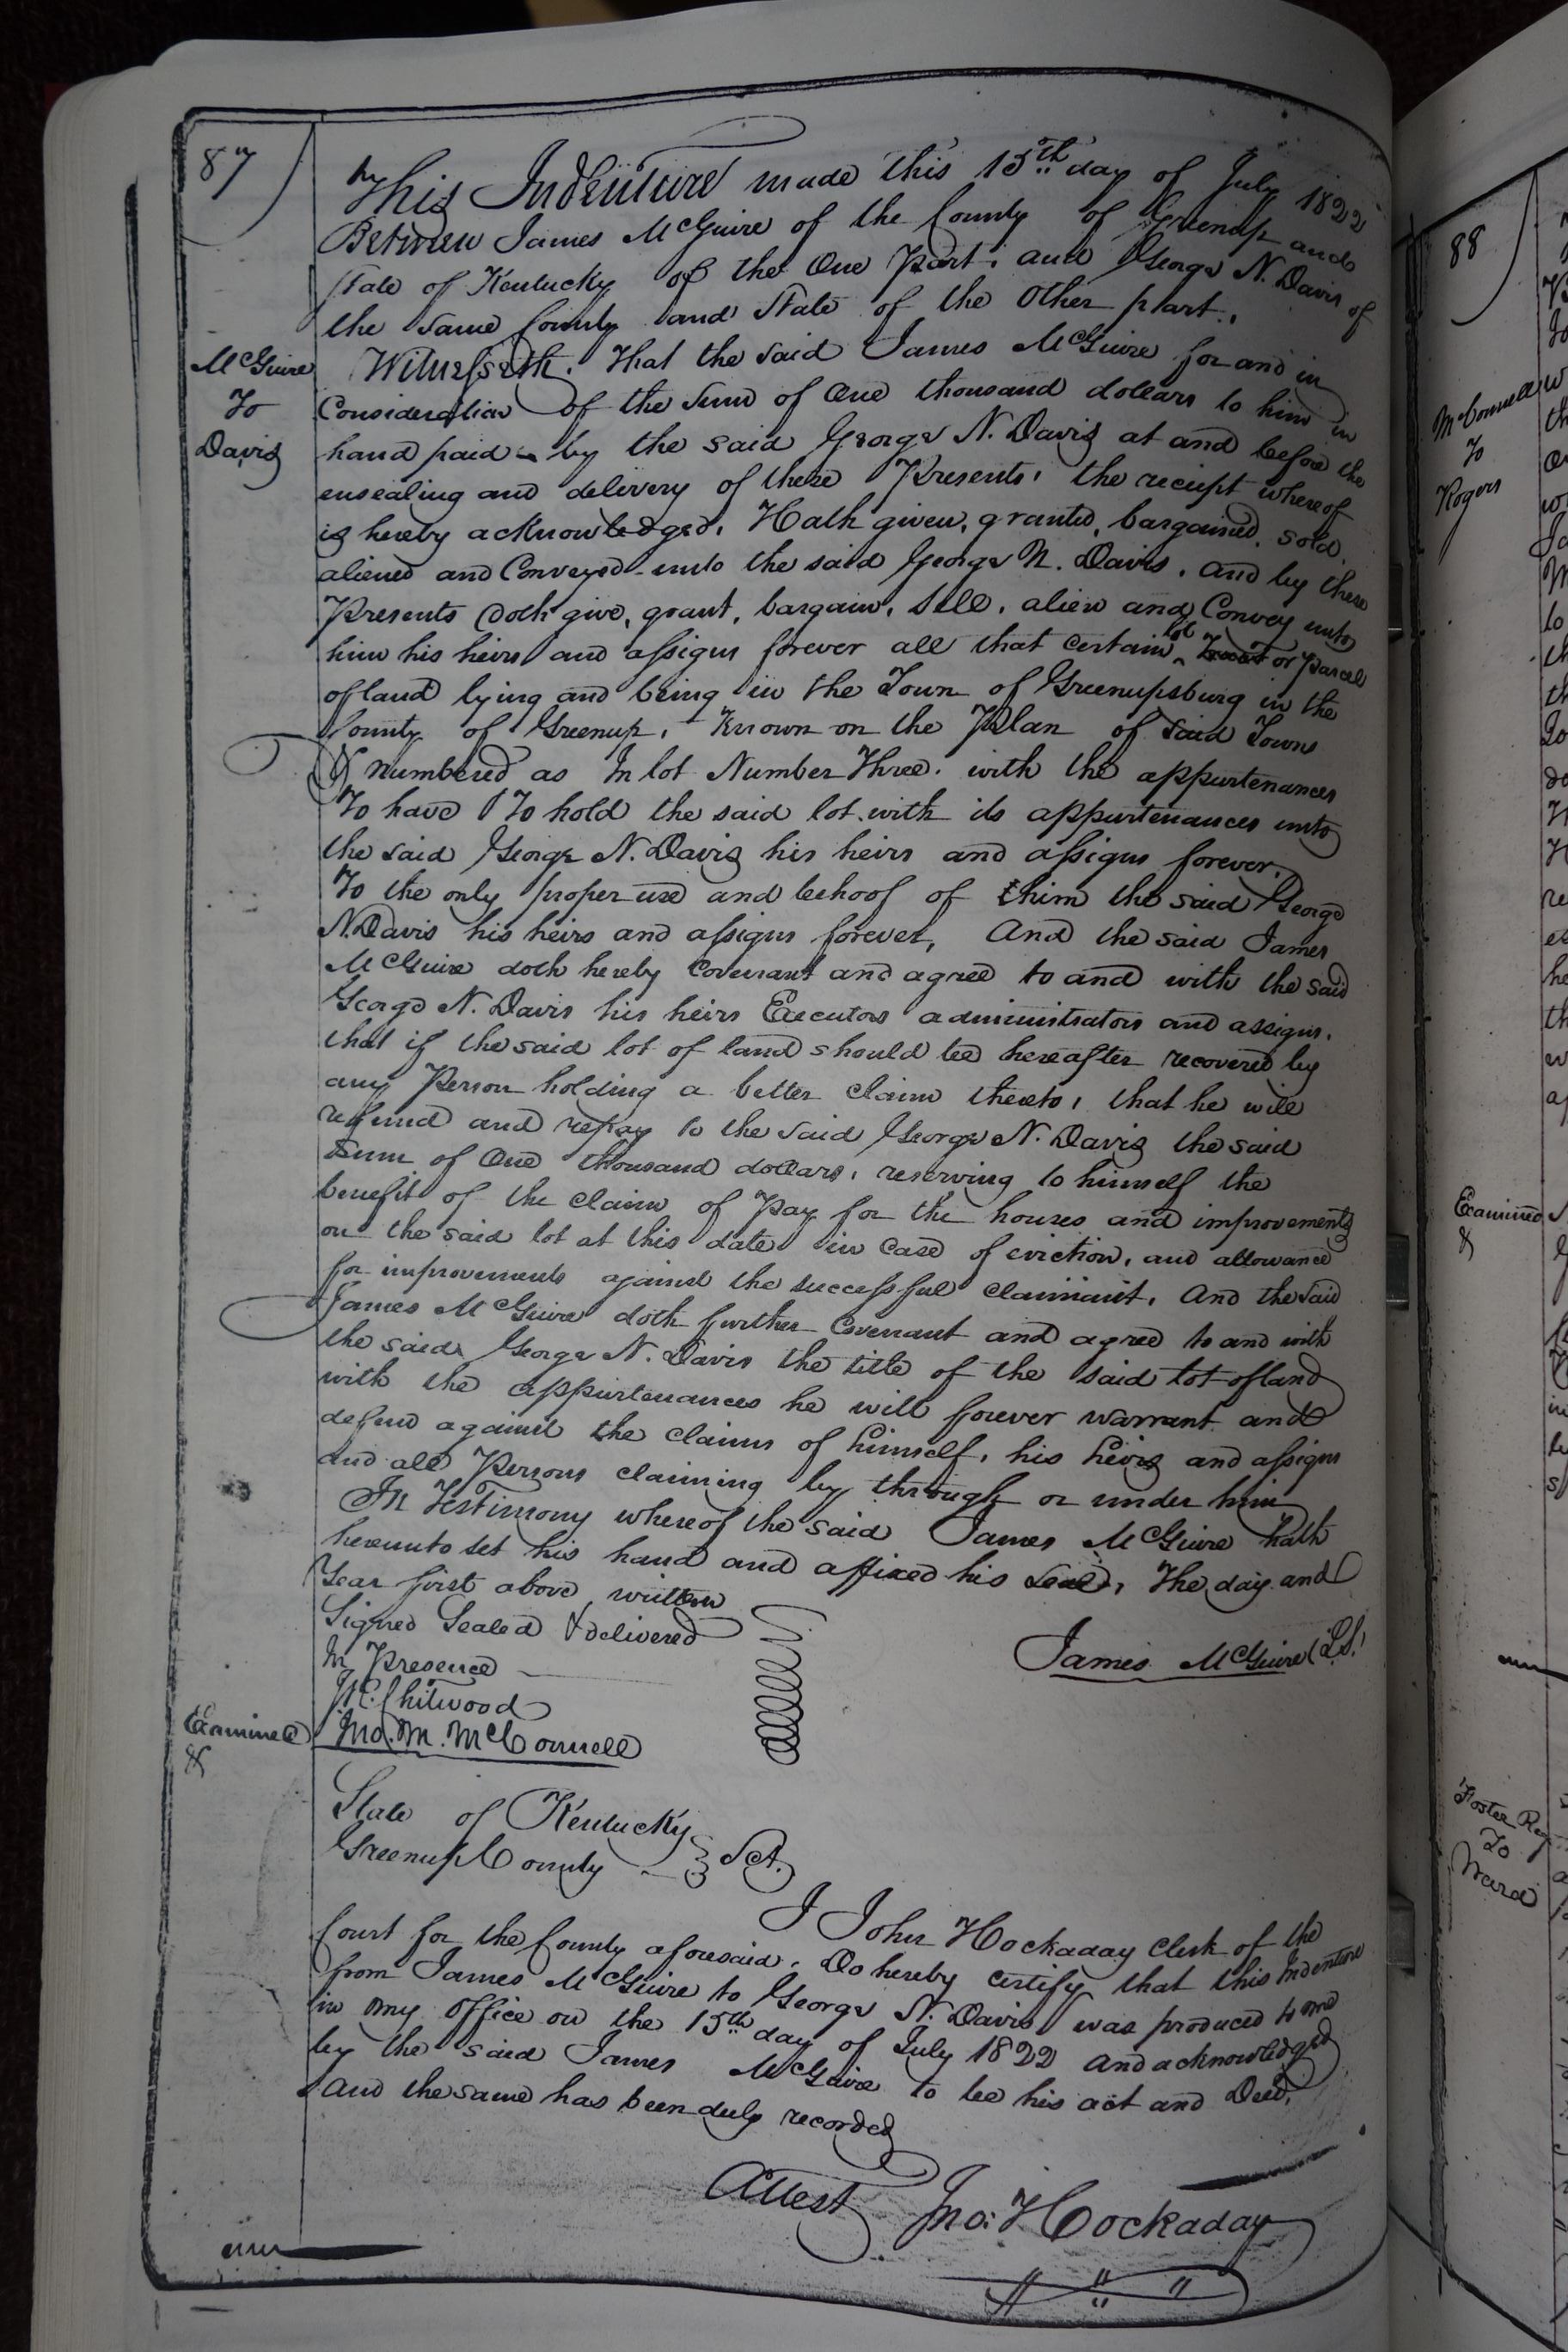 87
This Indenture made this 15th day of July 1822
Between James McGuire of the County of Greenup and
State of Kentucky of the One Part, and George N. Davis of
the same County and State of the Other part.
McGuire
To
Davis
Witnesseth. That the said James McGuire for and in
Consideration of the Sum of One thousand dollars to him in
hand paid by the said George N. Davis at and before the
ensealing and delivery of these Presents, the reciept whereof
is hereby acknowledged, Hath given, granted, bargained, sold,
aliened and Conveyed unto the said George N. Davis, and by these
Presents doth give, grant, bargain, Sell, alien and Convey unto
him his heirs and assigns forever all that certain lot Tract or parcel
of land lying and being in the Town of Greenupsburg in the
County of Greenup, Known on the Plan of Said Town
& numbered as In lot Number Three. with the appurtenances
To have & To hold the said lot with its appurtenances unto
the said George N. Davis his heirs and assigns forever.
To the only proper use and behoof of him the said George
N. Davis his heirs and assigns forever, And the said James
McGuire doth hereby Covenant and agree to and with the said
George N. Davis his heirs Executors administrators and assigns.
that if the said lot of land should be hereafter recovered by
any Person holding a better claim thereto, that he will
refund and repay to the said George N. Davis the said
Sum of One thousand dollars, reserving to himself the
benefit of the claim of Pay for the houses and improvements
on the said lot at this date in Case of eviction, and allowance
for improvements against the successful claimant. And the said
James McGuire doth further Covenant and agree to and with
the said George N. Davis the title of the said lot of land
with the appurtenances he will forever warrant and
defend against the claims of himself, his heirs and assigns
and all Persons claiming by through or under him
In Testimony whereof the said James McGuire hath
hereunto set his hand and affixed his Seal, The day and
Year first above written
Signed Sealed & delivered
In Presence
James McGuire (L.S.)
Chitwood
Jno. M. McConnell
Examined
&
State of Kentucky
Greenup County Sct.
I John Hockaday Clerk of the
Court for the County aforesaid, Do hereby certify that this Indenture
from James McGuire to George N. Davis was produced to me
in my Office on the 15th day of July 1822 and acknowledged
by the said James McGuire to be his act and Deed,
And the same has been duly recorded
Attest Jno. Hockaday
88
McConnell
To
Rogers
Examined
&
Foster
To
Ward